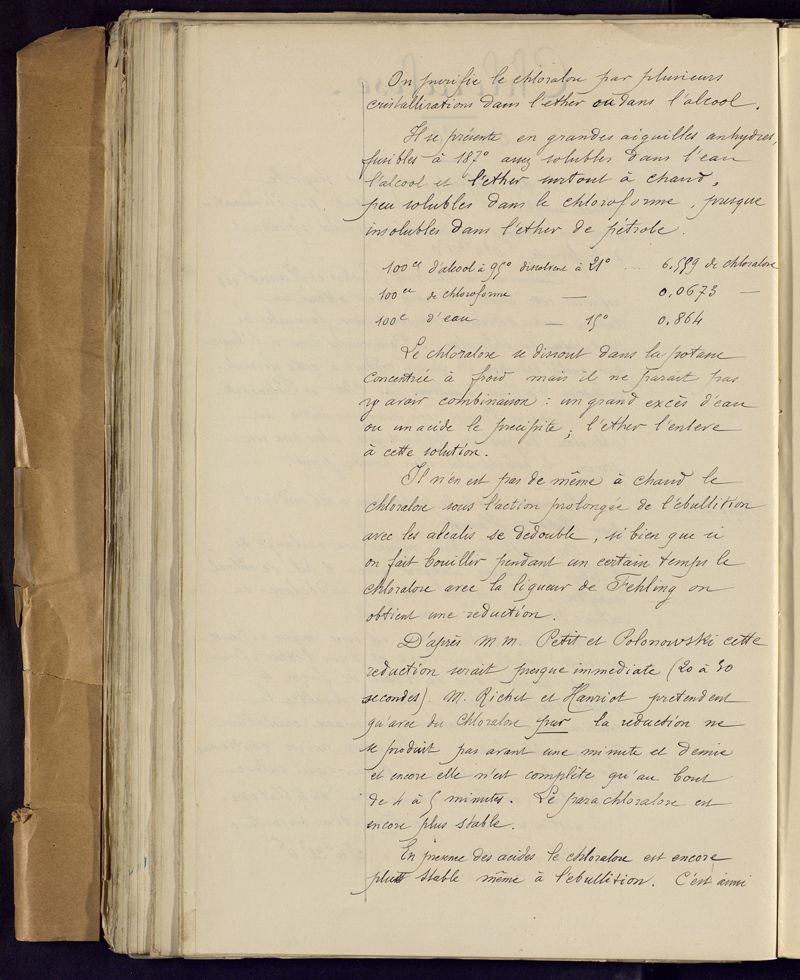 On purifie le chloralose par plusieurs
cristallisations dans l'ether ou dans l'alcool.
Il se présente en grandes aiguilles anhydres,
fusibles à 187° assez solubles dans l'eau
l'alcool et l'ether surtout à chaud,
peu solubles dans le chloroforme, presque
insolubles dans l'ether de pétrole.
100cc d'alcool à 95° dissolvent à 21° .... 6.559 de chloralose
100cc de chloroforme — 0,0673 —
100c d'eau — 15° 0.864
Le chloralose se dissout dans la potasse
concentrée à froid mais il ne parait pas
y avoir combinaison : un grand excès d'eau
ou un acide le precipite ; l'ether l'enleve
à cette solution.
Il n'en est pas de même à chaud le
chloralose sous l'action prolongée de l'ébullition
avec les alcalis se dedouble, si bien que si
on fait bouillir pendant un certain temps le
chloralose avec la liqueur de Fehling on
obtient une reduction.
D'après M.M. Petit et Polonowski cette
reduction serait presque immediate (20 à 30
secondes). M. Richet et Hanriot pretendent
qu'avec du chloralose pur la reduction ne
se produit pas avant une minute et demie
et encore elle n'est complète qu'au bout
de 4 à 5 minutes. Le parachloralose est
encore plus stable.
En presence des acides le chloralose est encore
plus stable même à l'ebullition. C'est ainsi